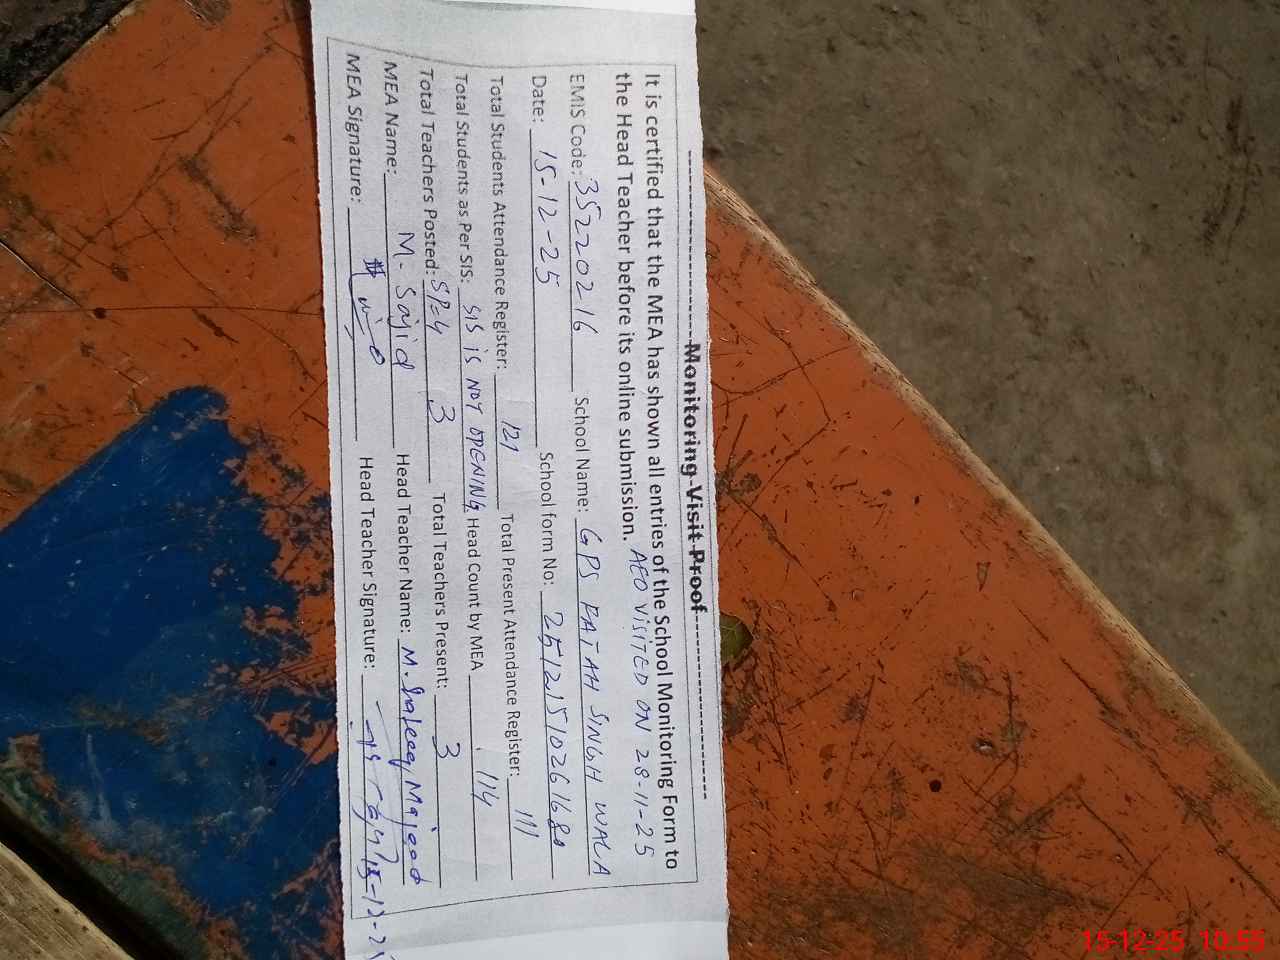 Monitoring Visit Proof
It is certified that the MEA has shown all entries of the School Monitoring Form to
the Head Teacher before its online submission. AEO VISITED ON 28-11-25
EMIS Code: 35220216 School Name: GPS RATAN SINGH WALA
Date: 15-12-25 School form No:
Total Students Attendance Register: 121 Total Present Attendance Register: 111
Total Students as Per SIS: SIS IS NOT OPENING Head Count by MEA 114
Total Teachers Posted: SP=4 3 Total Teachers Present: 3
MEA Name: M. Sajid Head Teacher Name: M. Majeed
MEA Signature: Head Teacher Signature:
15-12-25 10:55